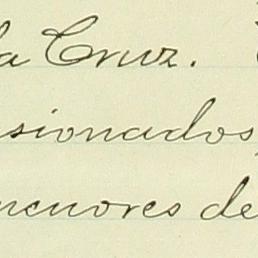 la Cruz.
sionados,
menores de